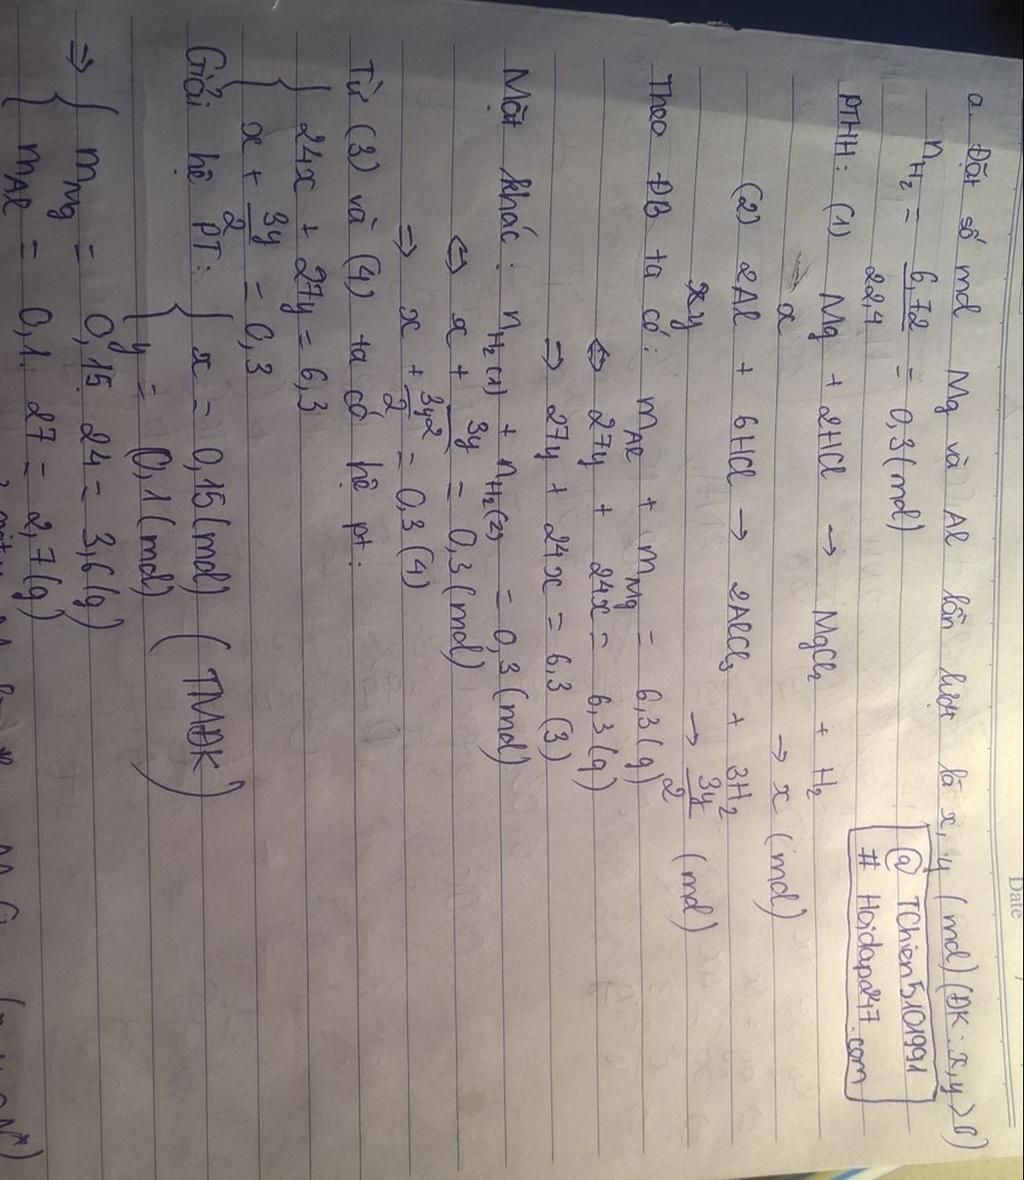 Date
a. Đặt số mol Mg và Al lần lượt là x, y (mol) (ĐK: x,y > 0)
nH₂ = 6,72/22,4 = 0,3 (mol)
@ TChien5101991
# Hoidap247.com
PTHH: (1) Mg + 2HCl → MgCl₂ + H₂
x → x (mol)
(2) 2Al + 6HCl → 2AlCl₃ + 3H₂
y → 3y/2 (mol)
Theo ĐB ta có: mAl + mMg = 6,3 (g)
⇔ 27y + 24x = 6,3 (g)
⇒ 27y + 24x = 6,3 (3)
Mặt khác: nH₂(1) + nH₂(2) = 0,3 (mol)
⇔ x + 3y/2 = 0,3 (mol)
⇒ x + 3y/2 = 0,3 (4)
Từ (3) và (4) ta có hệ pt:
{ 24x + 27y = 6,3
x + 3y/2 = 0,3
Giải hệ PT: { x = 0,15 (mol) (TMĐK)
y = 0,1 (mol)
⇒ { mMg = 0,15. 24 = 3,6 (g)
{ mAl = 0,1. 27 = 2,7 (g)